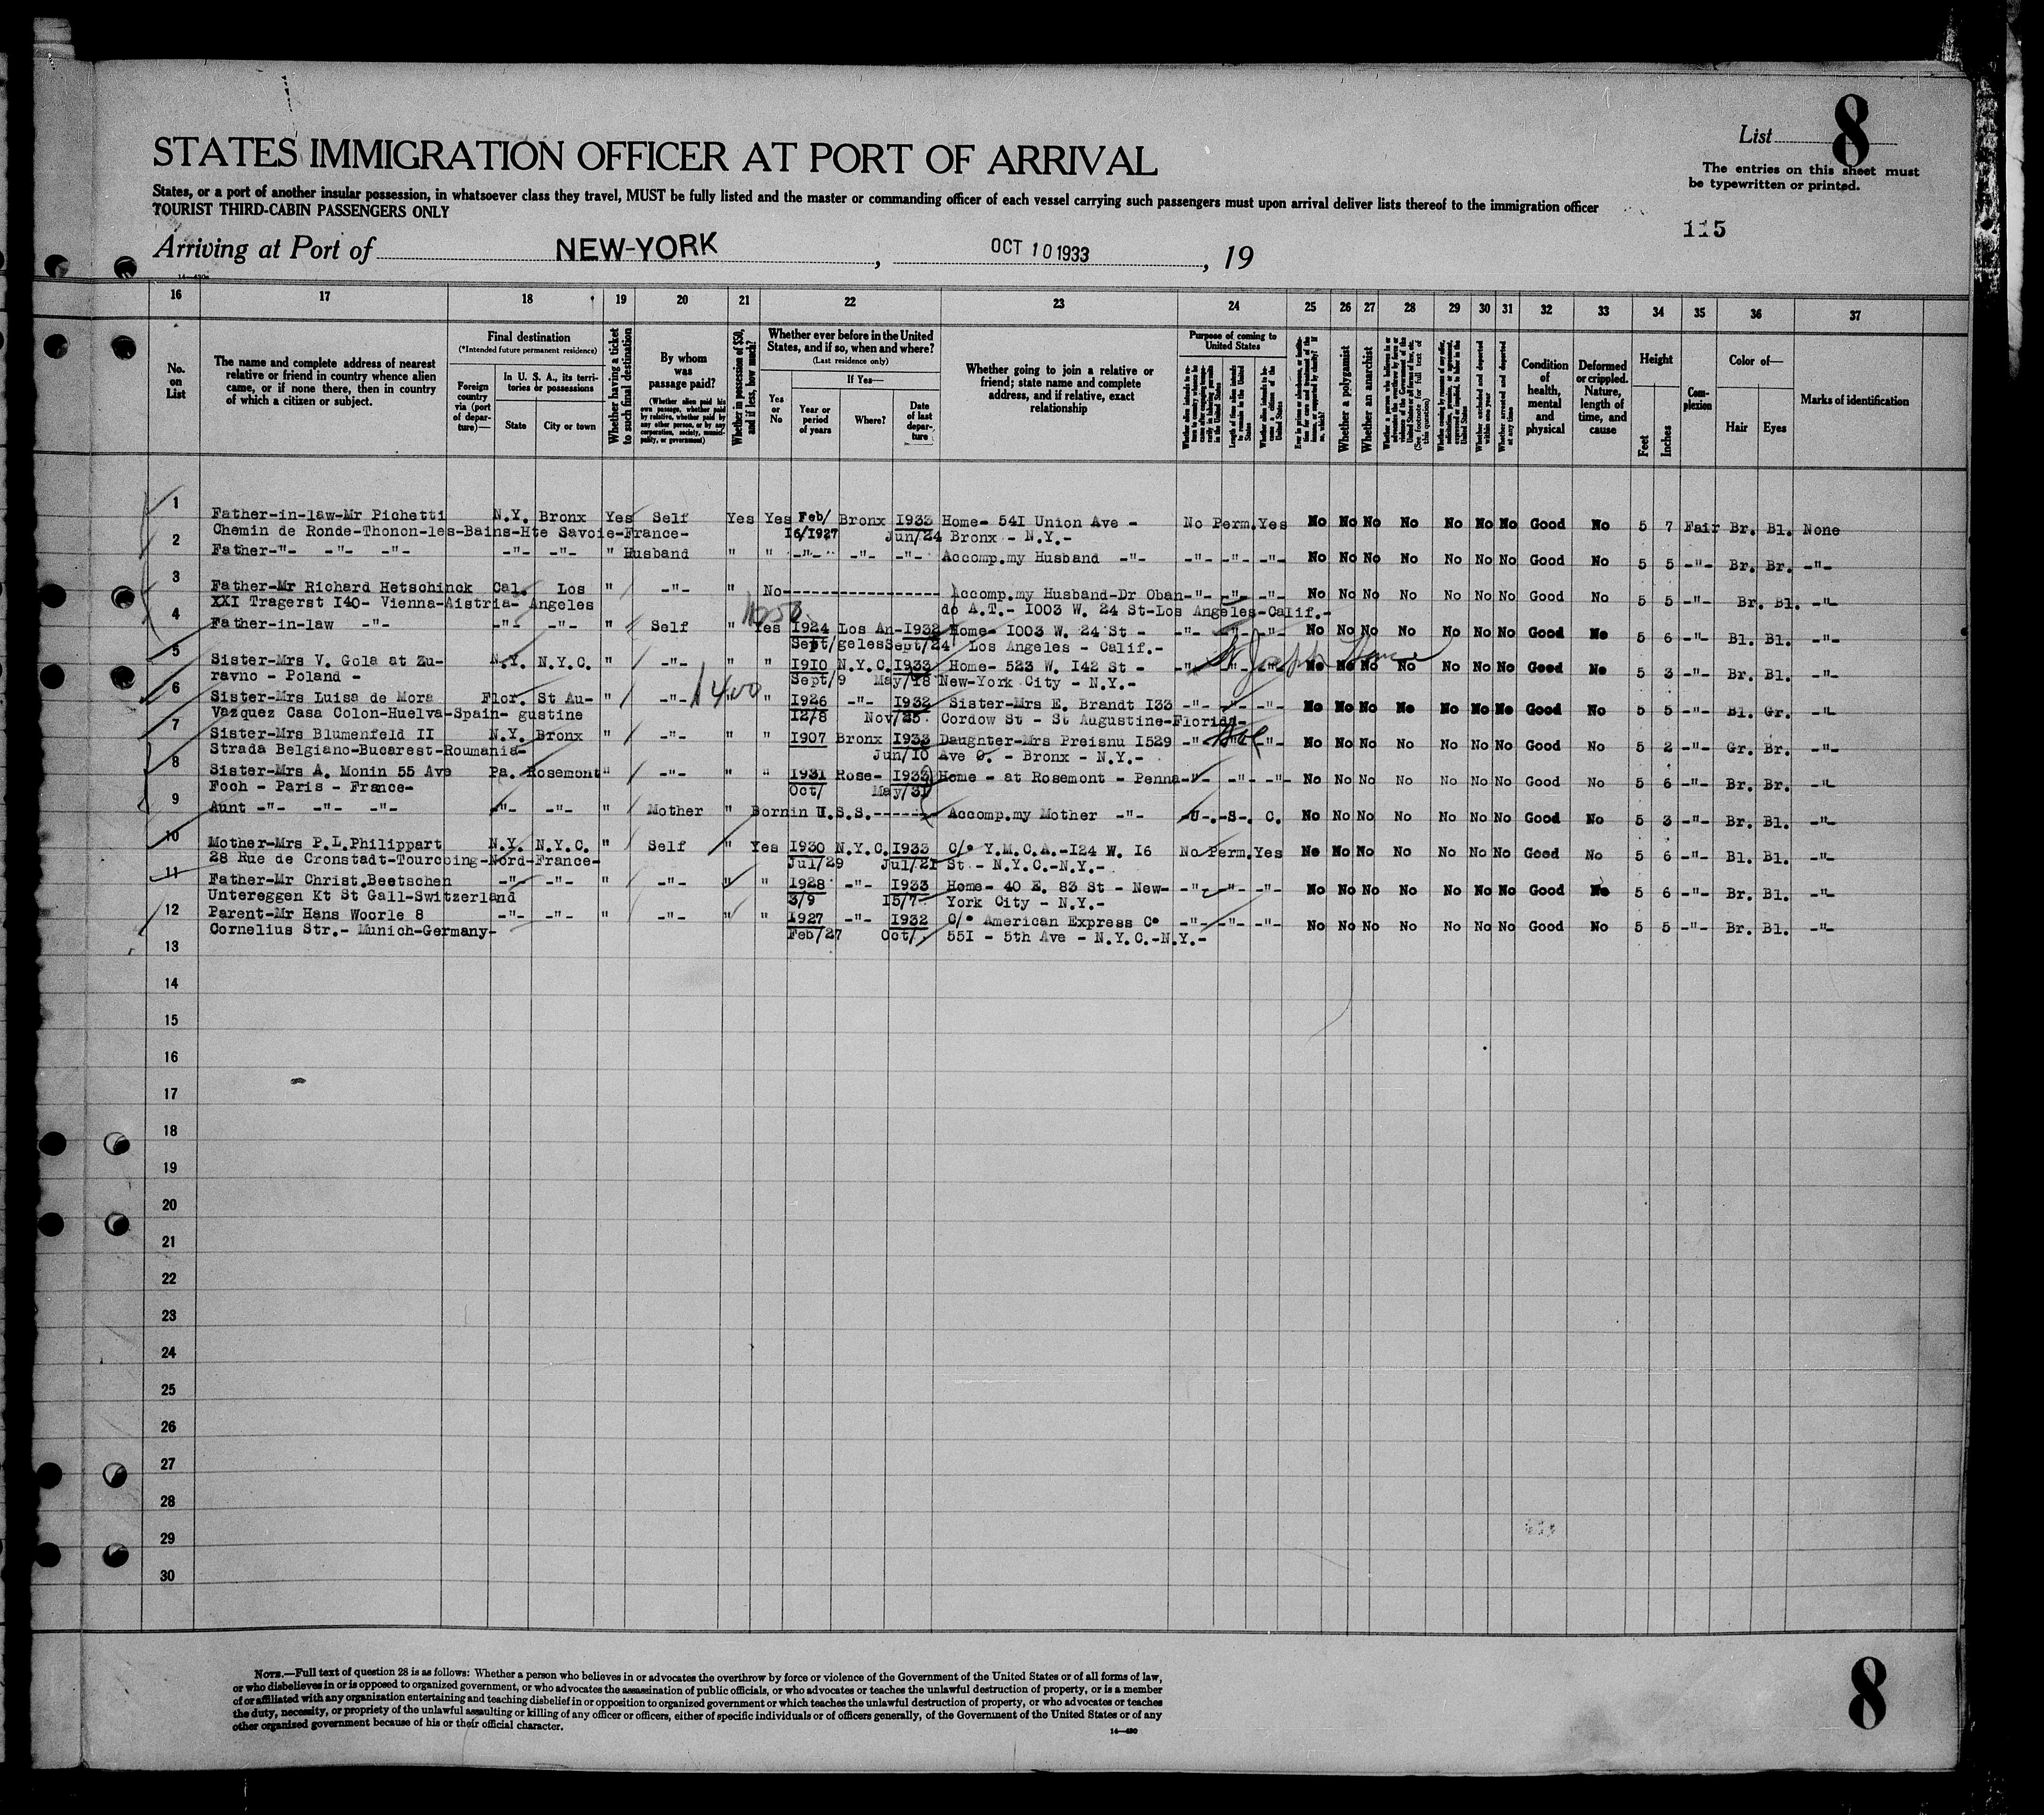 List 8
The entries on this sheet must
be typewritten or printed.
STATES IMMIGRATION OFFICER AT PORT OF ARRIVAL
States, or a port of another insular possession, in whatsoever class they travel, MUST be fully listed and the master or commanding officer of each vessel carrying such passengers must upon arrival deliver lists thereof to the immigration officer
TOURIST THIRD-CABIN PASSENGERS ONLY
115
Arriving at Port of NEW-YORK, OCT 10 1933, 19
16 17 18 19 20 21 22 23 24 25 26 27 28 29 30 31 32 33 34 35 36 37
No. on List
The name and complete address of nearest
relative or friend in country whence alien
came, or if none there, then in country
of which a citizen or subject.
Final destination
(*Intended future permanent residence)
Foreign country via (port of departure)—
In U. S. A., its territories or possessions
State
City or town
Whether having a ticket to such final destination
By whom was passage paid?
(Whether alien paid his own passage, whether paid by relative, whether paid by any other person, or by any corporation, society, municipality, or government)
Whether in possession of $50, and if less, how much?
Whether ever before in the United States, and if so, when and where?
(Last residence only)
Yes or No
If Yes—
Year or period of years
Where?
Date of last departure
Whether going to join a relative or
friend; state name and complete
address, and if relative, exact
relationship
Purpose of coming to United States
Whether a polygamist
Whether an anarchist
Whether excluded and deported within one year
Whether arrested and deported at any time
Condition of health, mental and physical
Deformed or crippled. Nature, length of time, and cause
Height
Feet
Inches
Complexion
Color of—
Hair
Eyes
Marks of identification
1
Father-in-law-Mr Pichetti N.Y. Bronx Yes Self Yes Yes Feb/ Bronx 1933 Home- 541 Union Ave - No Perm. Yes No No No No No No No Good No 5 7 Fair Br. Bl. None
Chemin de Ronde-Thonon-les-Bains-Hte Savoie-France- 16/1927 Jun/24 Bronx - N.Y.-
2
Father-"- -"- -"- -"- -"- " Husband " " -"- -"- -"- Accomp.my Husband -"- -"- -"- -"- No No No No No No No Good No 5 5 -"- Br. Br. -"-
3
Father-Mr Richard Hetschinck Cal. Los " -"- " No---------------- Accomp.my Husband-Dr Oban -"- -"- -"- No No No No No No No Good No 5 5 -"- Br. Bl. -"-
XXI Tragerst I40- Vienna-Aistria- Angeles do A.T.- 1003 W. 24 St-Los Angeles-Calif.-
4
Father-in-law -"- -"- -"- " Self " Yes 1924 Los An- 1932 Home- 1003 W. 24 St - -"- -"- -"- No No No No No No No Good No 5 6 -"- Bl. Bl. -"-
Sept/ geles Sept/24 Los Angeles - Calif.-
5
Sister-Mrs V. Gola at Zu- N.Y. N.Y.C. " -"- " " 1910 N.Y.C. 1933 Home- 523 W. 142 St - -"- -"- -"- No No No No No No No Good No 5 3 -"- Br. Bl. -"-
ravno - Poland - Sept/9 May/18 New-York City - N.Y.-
6
Sister-Mrs Luisa de Mora Flor. St Au- " -"- 1400 " " 1926 -"- 1932 Sister-Mrs E. Brandt 133 -"- -"- -"- No No No No No No No Good No 5 5 -"- Bl. Gr. -"-
Vazquez Casa Colon-Huelva-Spain- gustine 12/8 Nov/25 Cordow St - St Augustine-Florida-
7
Sister-Mrs Blumenfeld II N.Y. Bronx " -"- " " 1907 Bronx 1933 Daughter-Mrs Preisnu 1529 -"- -"- No No No No No No No Good No 5 2 -"- Gr. Br. -"-
Strada Belgiano-Bucarest-Roumania- Jun/10 Ave O. - Bronx - N.Y.-
8
Sister-Mrs A. Monin 55 Ave Pa. Rosemont " -"- " " 1931 Rose- 1933 Home - at Rosemont - Penna -"- -"- -"- No No No No No No No Good No 5 6 -"- Br. Br. -"-
Foch - Paris - France- Oct/ May/31
9
Aunt -"- -"- -"- -"- -"- " Mother " Born in U.S.S.------ Accomp.my Mother -"- -U-.-S-. C. No No No No No No No Good No 5 3 -"- Br. Bl. -"-
10
Mother-Mrs P.L.Philippart N.Y. N.Y.C. " Self " Yes 1930 N.Y.C. 1933 C/o Y.M.C.A.-124 W. 16 No Perm. Yes No No No No No No No Good No 5 6 -"- Bl. Bl. -"-
28 Rue de Cronstadt-Tourcoing-Nord-France- Jul/29 Jul/21 St - N.Y.C.-N.Y.-
11
Father-Mr Christ.Beetschen -"- -"- " -"- " " 1928 -"- 1933 Home- 40 E. 83 St - New- -"- -"- -"- No No No No No No No Good No 5 6 -"- Br. Bl. -"-
Untereggen Kt St Gall-Switzerland 3/9 15/7 York City - N.Y.-
12
Parent-Mr Hans Woorle 8 -"- -"- " -"- " " 1927 -"- 1932 C/o American Express Co -"- -"- -"- No No No No No No No Good No 5 5 -"- Br. Bl. -"-
Cornelius Str.- Munich-Germany- Feb/27 Oct/ 551 - 5th Ave - N.Y.C.-N.Y.-
13
14
15
16
17
18
19
20
21
22
23
24
25
26
27
28
29
30
NOTE.—Full text of question 28 is as follows: Whether a person who believes in or advocates the overthrow by force or violence of the Government of the United States or of all forms of law,
or who disbelieves in or is opposed to organized government, or who advocates the assassination of public officials, or who advocates or teaches the unlawful destruction of property, or is a member
of or affiliated with any organization entertaining and teaching disbelief in or opposition to organized government or which teaches the unlawful destruction of property, or who advocates or teaches
the duty, necessity, or propriety of the unlawful assaulting or killing of any officer or officers, either of specific individuals or of officers generally, of the Government of the United States or of any
other organized government because of his or their official character.
14—480
8